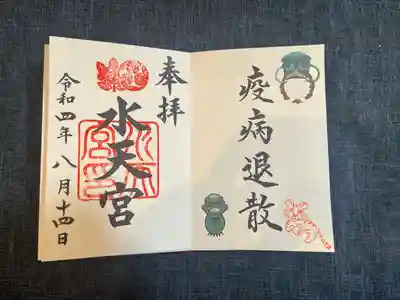 疫病退散
奉拝
水天宮
令和四年八月十四日
水天宮印